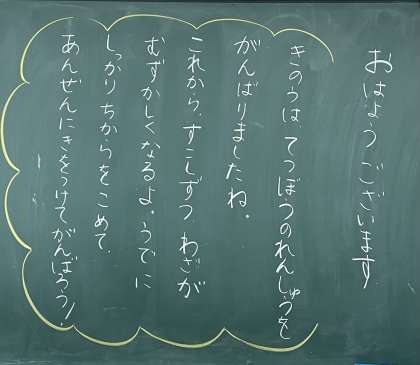 おはようございます
きのうは、てつぼうのれんしゅうを
がんばりましたね。
これから、すこしずつ わざが
むずかしくなるよ。うでに
しっかりちからをこめて、
あんぜんにきをつけて、がんばろう!